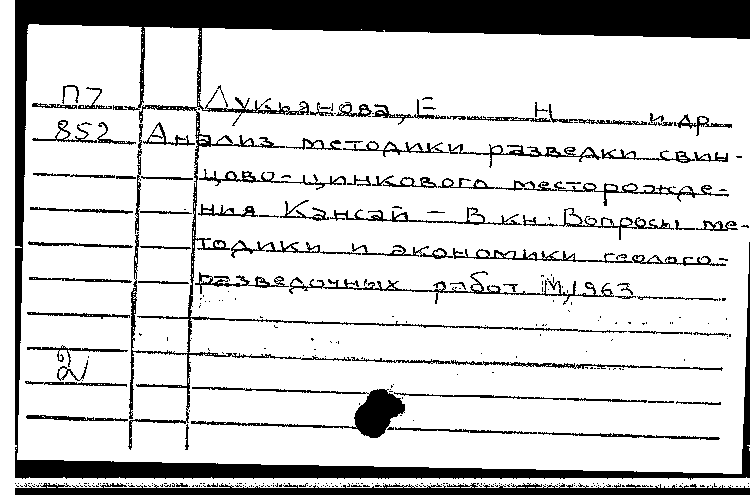 П7 Лукьянова, Е Н и др
852 Анализ методики разведки свин-
цово-цинкового месторожде-
ния Кансай – В кн: Вопросы ме-
тодики и экономики геолого-
разведочных работ. М, 1963
2